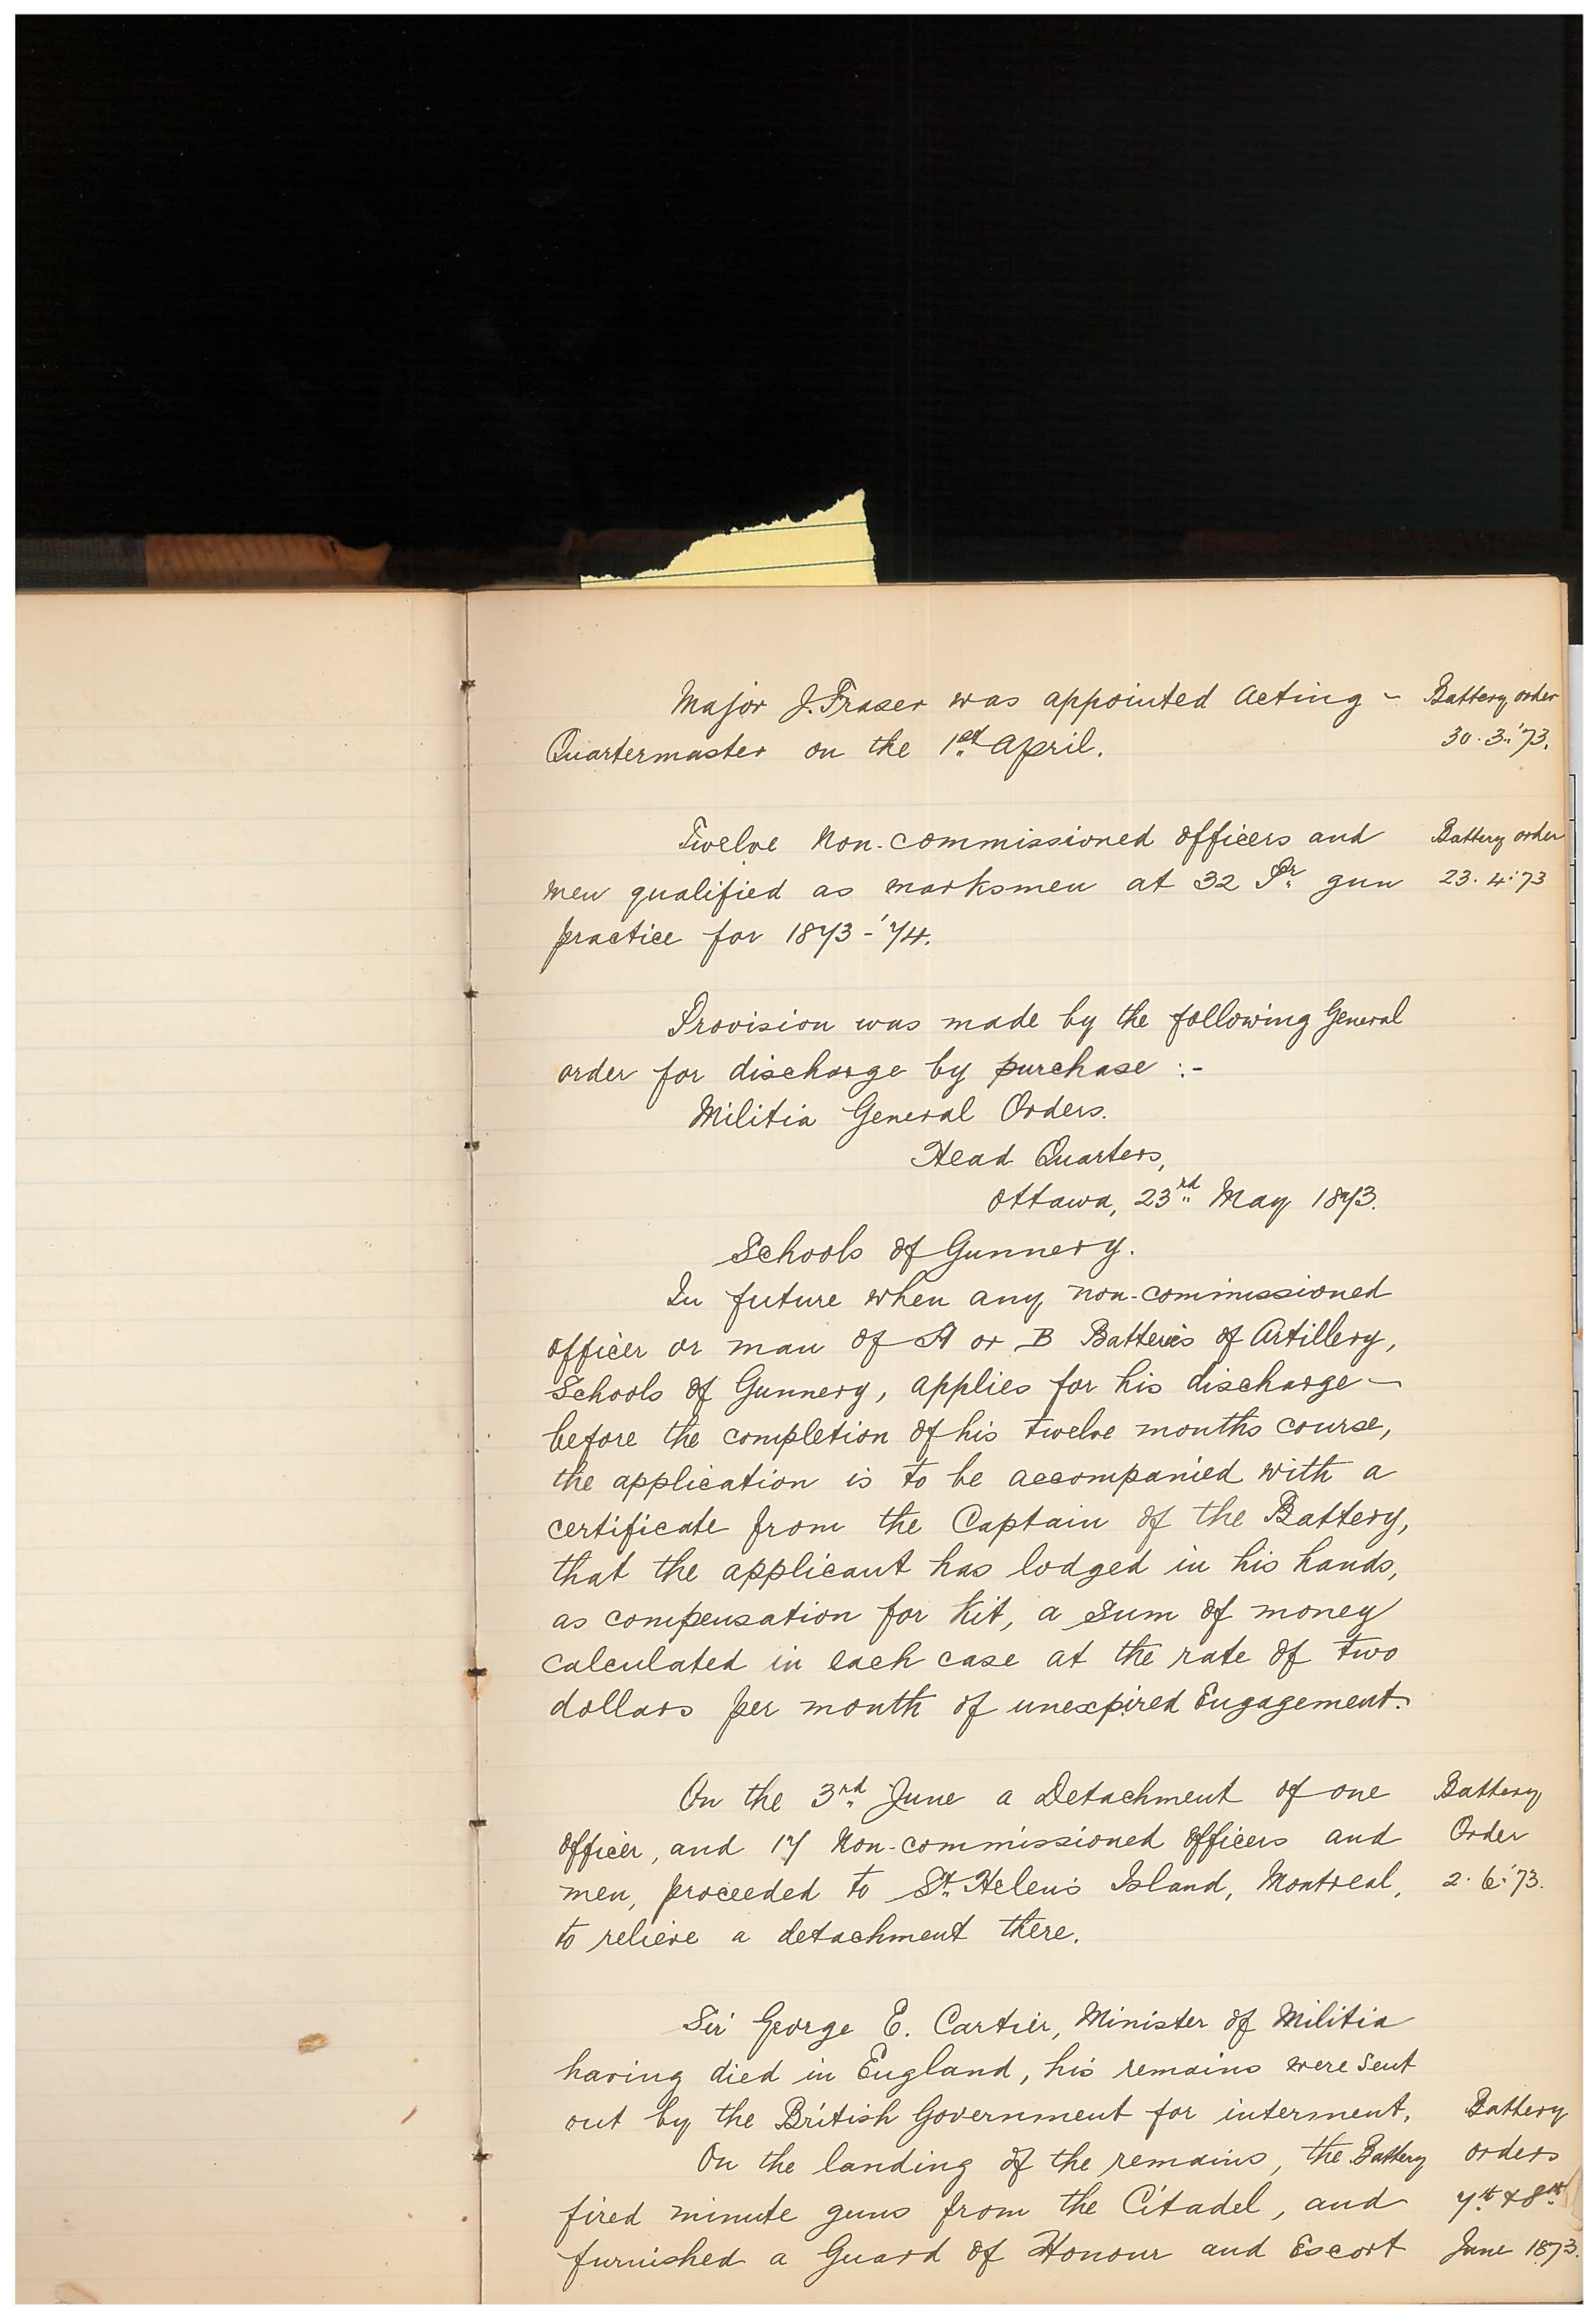 Major J. Fraser was appointed Acting - Battery order
Quartermaster on the 1st April. 30.3.'73.
Twelve Non-commissioned officers and Battery order
men qualified as marksmen at 32 Pr gun 23.4.'73
practice for 1873-'74.
Provision was made by the following General
order for discharge by purchase :-
Militia General Orders.
Head Quarters,
Ottawa, 23rd May 1873.
Schools of Gunnery.
In future when any non-commissioned
officer or man of A or B Batteries of Artillery,
Schools of Gunnery, applies for his discharge -
before the completion of his twelve months course,
the application is to be accompanied with a
certificate from the Captain of the Battery,
that the applicant has lodged in his hands,
as compensation for kit, a sum of money
calculated in each case at the rate of two
dollars per month of unexpired Engagement.
On the 3rd June a Detachment of one Battery
officer, and 17 Non-commissioned officers and Order
men, proceeded to St. Helen's Island, Montreal, 2.6.'73.
to relieve a detachment there.
Sir George E. Cartier, Minister of Militia
having died in England, his remains were sent
out by the British Government for interment. Battery
On the landing of the remains, the Battery orders
fired minute guns from the Citadel, and 7th & 8th
furnished a Guard of Honour and Escort June 1873.